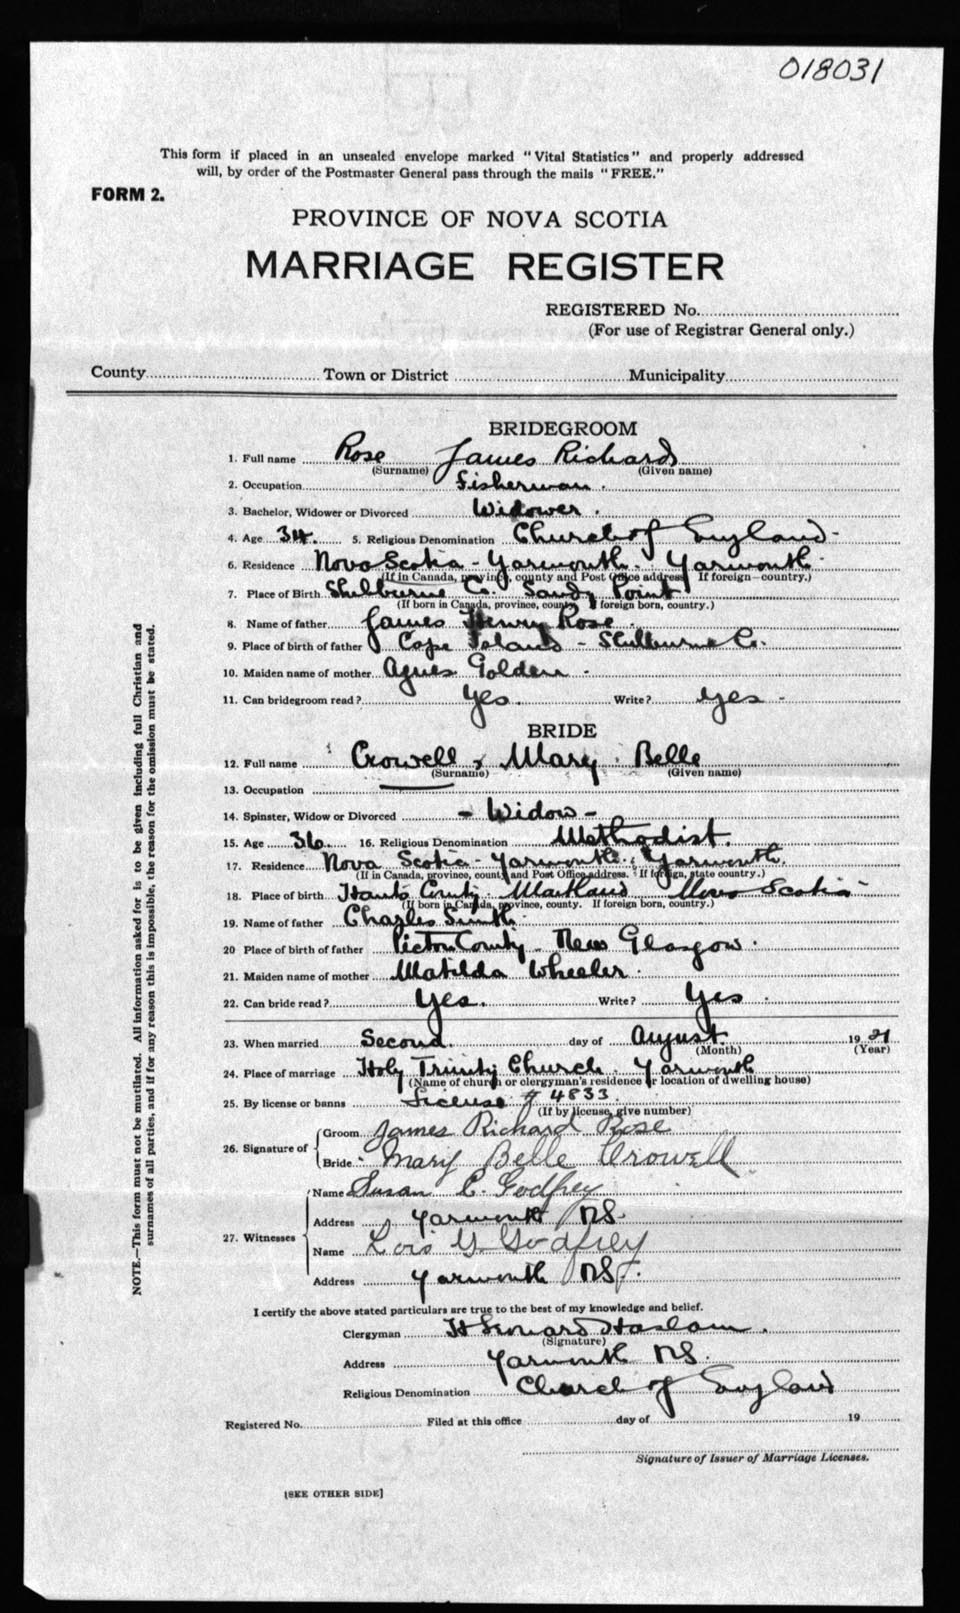 018031
This form if placed in an unsealed envelope marked "Vital Statistics" and properly addressed
will, by order of the Postmaster General pass through the mails "FREE."
FORM 2.
PROVINCE OF NOVA SCOTIA
MARRIAGE REGISTER
REGISTERED No.
(For use of Registrar General only.)
County Town or District Municipality
BRIDEGROOM
1. Full name Rose James Richard
(Surname) (Given name)
2. Occupation Fisherman.
3. Bachelor, Widower or Divorced Widower.
4. Age 34. 5. Religious Denomination Church of England-
6. Residence Nova Scotia - Yarmouth. Yarmouth.
(If in Canada, province, county and Post Office address. If foreign—country.)
7. Place of Birth Shelburne Co. Sandy Point
(If born in Canada, province, county. If foreign born, country.)
8. Name of father James Henry Rose.
9. Place of birth of father Cape Island - Shelburne Co.
10. Maiden name of mother Agnes Golden -
11. Can bridegroom read? Yes. Write? Yes -
BRIDE
12. Full name Crowell, Mary Belle
(Surname) (Given name)
13. Occupation
14. Spinster, Widow or Divorced - Widow -
15. Age 36. 16. Religious Denomination Methodist.
17. Residence Nova Scotia - Yarmouth, Yarmouth.
(If in Canada, province, county and Post Office address. If foreign, state country.)
18. Place of birth Hants County Maitland Nova Scotia
(If born in Canada, province, county. If foreign born, country.)
19. Name of father Charles Smith
20 Place of birth of father Pictou County New Glasgow.
21. Maiden name of mother Matilda Wheeler.
22. Can bride read? Yes. Write? Yes.
23. When married Second. day of August. 1921
(Month) (Year)
24. Place of marriage Holy Trinity Church. Yarmouth
(Name of church or clergyman's residence or location of dwelling house)
25. By license or banns License # 4833.
(If by license, give number)
26. Signature of Groom James Richard Rose
Bride Mary Belle Crowell
27. Witnesses Name Susan C. Godfrey
Address Yarmouth NS.
Name Lois G. Godfrey
Address Yarmouth NS.
I certify the above stated particulars are true to the best of my knowledge and belief.
Clergyman H Leonard Haslam.
(Signature)
Address Yarmouth NS.
Religious Denomination Church of England
Registered No. Filed at this office day of 19
Signature of Issuer of Marriage Licenses.
[SEE OTHER SIDE]
NOTE.—This form must not be mutilated. All information asked for is to be given including full Christian and
surnames of all parties, and if for any reason this is impossible, the reason for the omission must be stated.